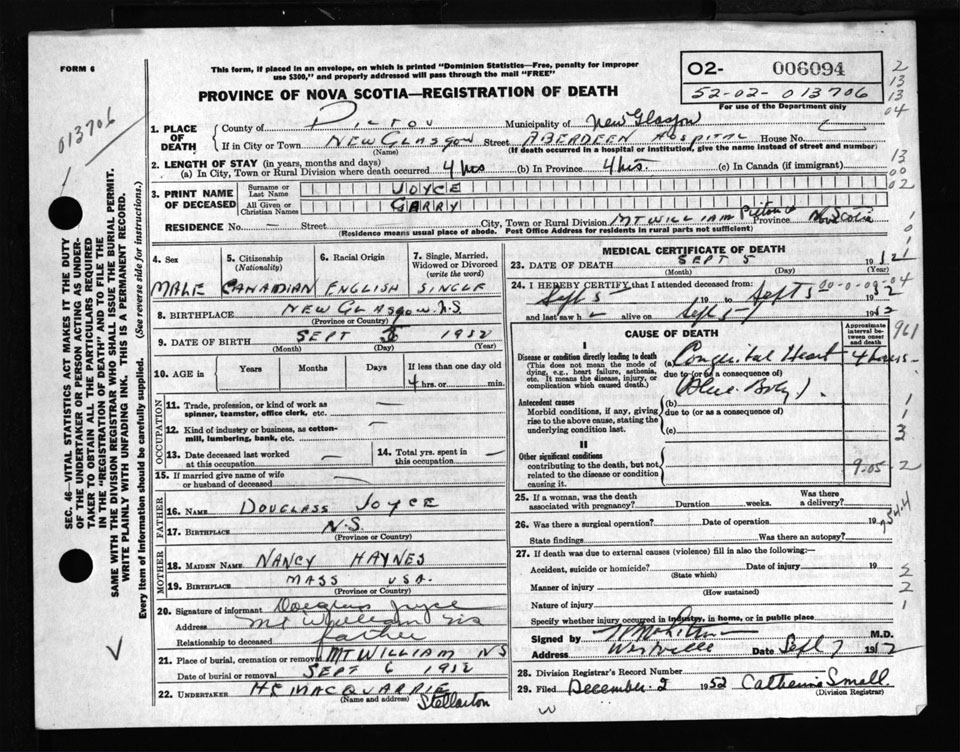 FORM 6
This form, if placed in an envelope, on which is printed "Dominion Statistics—Free, penalty for improper
use $300," and properly addressed will pass through the mail "FREE"
PROVINCE OF NOVA SCOTIA—REGISTRATION OF DEATH
02- 006094
52-02-013706
For use of the Department only
2
13
13
04
013706
1. PLACE OF DEATH
County of Pictou Municipality of New Glasgow
If in City or Town NEW GLASGOW Street ABERDEEN HOSPITAL House No.
(Name) (If death occurred in a hospital or institution, give the name instead of street and number)
2. LENGTH OF STAY (in years, months and days)
(a) In City, Town or Rural Division where death occurred 4 hrs (b) In Province 4 hrs. (c) In Canada (if immigrant)
13
00
02
3. PRINT NAME OF DECEASED
Surname or Last Name JOYCE
All Given or Christian Names GARRY
RESIDENCE No. — Street City, Town or Rural Division MT WILLIAM Pictou Co Province Nova Scotia
(Residence means usual place of abode. Post Office Address for residents in rural parts not sufficient)
4. Sex
MALE
5. Citizenship (Nationality)
CANADIAN
6. Racial Origin
ENGLISH
7. Single, Married, Widowed or Divorced (write the word)
SINGLE
8. BIRTHPLACE NEW GLASGOW. N.S.
(Province or Country)
9. DATE OF BIRTH SEPT 1952
(Month) (Day) (Year)
10. AGE in Years Months Days If less than one day old
4 hrs. or min.
OCCUPATION
11. Trade, profession, or kind of work as
spinner, teamster, office clerk, etc. —
12. Kind of industry or business, as cotton-
mill, lumbering, bank, etc. —
13. Date deceased last worked
at this occupation —
14. Total yrs. spent in
this occupation —
15. If married give name of wife
or husband of deceased —
FATHER
16. NAME DOUGLASS JOYCE
17. BIRTHPLACE N.S.
(Province or Country)
MOTHER
18. MAIDEN NAME NANCY HAYNES
19. BIRTHPLACE MASS USA.
(Province or Country)
20. Signature of informant Douglas Joyce
Address Mt William N.S
Relationship to deceased father
21. Place of burial, cremation or removal MT WILLIAM NS
Date of burial or removal SEPT 6 1952
22. UNDERTAKER H S MACQUARRIE
(Name and address) Stellarton
MEDICAL CERTIFICATE OF DEATH
23. DATE OF DEATH SEPT 5 1952
(Month) (Day) (Year)
24. I HEREBY CERTIFY that I attended deceased from: 00-0-00-04
Sept 5 19 to Sept 5 1952
and last saw h alive on Sept 5 1952
CAUSE OF DEATH
Approximate interval between onset and death
961
I
Disease or condition directly leading to death
(This does not mean the mode of
dying, e.g., heart failure, asthenia,
etc. It means the disease, injury, or
complication which caused death.)
(a) Congenital Heart 4 hours.
due to (or as a consequence of)
(Blue Baby).
Antecedent causes
Morbid conditions, if any, giving
rise to the above cause, stating the
underlying condition last.
(b)
due to (or as a consequence of)
(c)
II
Other significant conditions
contributing to the death, but not
related to the disease or condition
causing it.
9-05-2
25. If a woman, was the death
associated with pregnancy? Duration weeks. Was there
a delivery?
26. Was there a surgical operation? Date of operation 19
State findings Was there an autopsy?
7544
27. If death was due to external causes (violence) fill in also the following:—
Accident, suicide or homicide? Date of injury 19
(State which)
Manner of injury
(How sustained)
Nature of injury
Specify whether injury occurred in industry, in home, or in public place
Signed by M.D.
Address Westville Date Sept 7 1952
28. Division Registrar's Record Number
29. Filed December 2 1952 Catherine Small
(Division Registrar)
SEC. 46—VITAL STATISTICS ACT MAKES IT THE DUTY
OF THE UNDERTAKER OR PERSON ACTING AS UNDER-
TAKER TO OBTAIN ALL THE PARTICULARS REQUIRED
IN THE "REGISTRATION OF DEATH" AND TO FILE THE
SAME WITH THE DIVISION REGISTRAR WHO SHALL ISSUE THE BURIAL PERMIT.
WRITE PLAINLY WITH UNFADING INK. THIS IS A PERMANENT RECORD.
Every item of information should be carefully supplied. (See reverse side for instructions.)